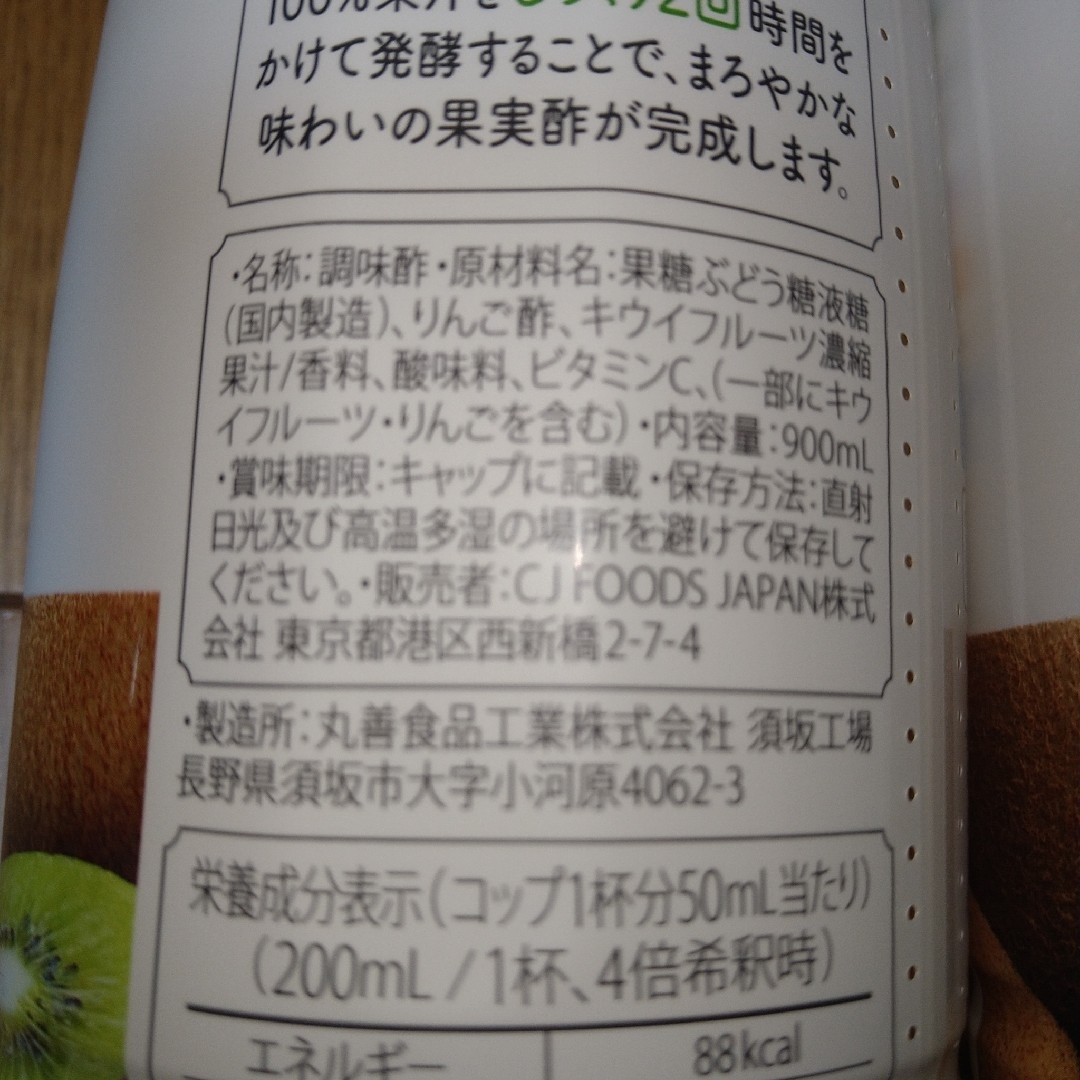 100%果汁を2回時間を
かけて発酵することで、まろやかな
味わいの果実酢が完成します。
・名称：調味酢・原材料名：果糖ぶどう糖液糖
(国内製造)、りんご酢、キウイフルーツ濃縮
果汁/香料、酸味料、ビタミンC、(一部にキウ
イフルーツ・りんごを含む)・内容量：900mL
・賞味期限：キャップに記載・保存方法：直射
日光及び高温多湿の場所を避けて保存して
ください。・販売者：CJ FOODS JAPAN株式
会社 東京都港区西新橋2-7-4
・製造所：丸善食品工業株式会社 須坂工場
長野県須坂市大字小河原4062-3
栄養成分表示(コップ1杯分50mL当たり)
(200mL/1杯、4倍希釈時)
エネルギー 88kcal